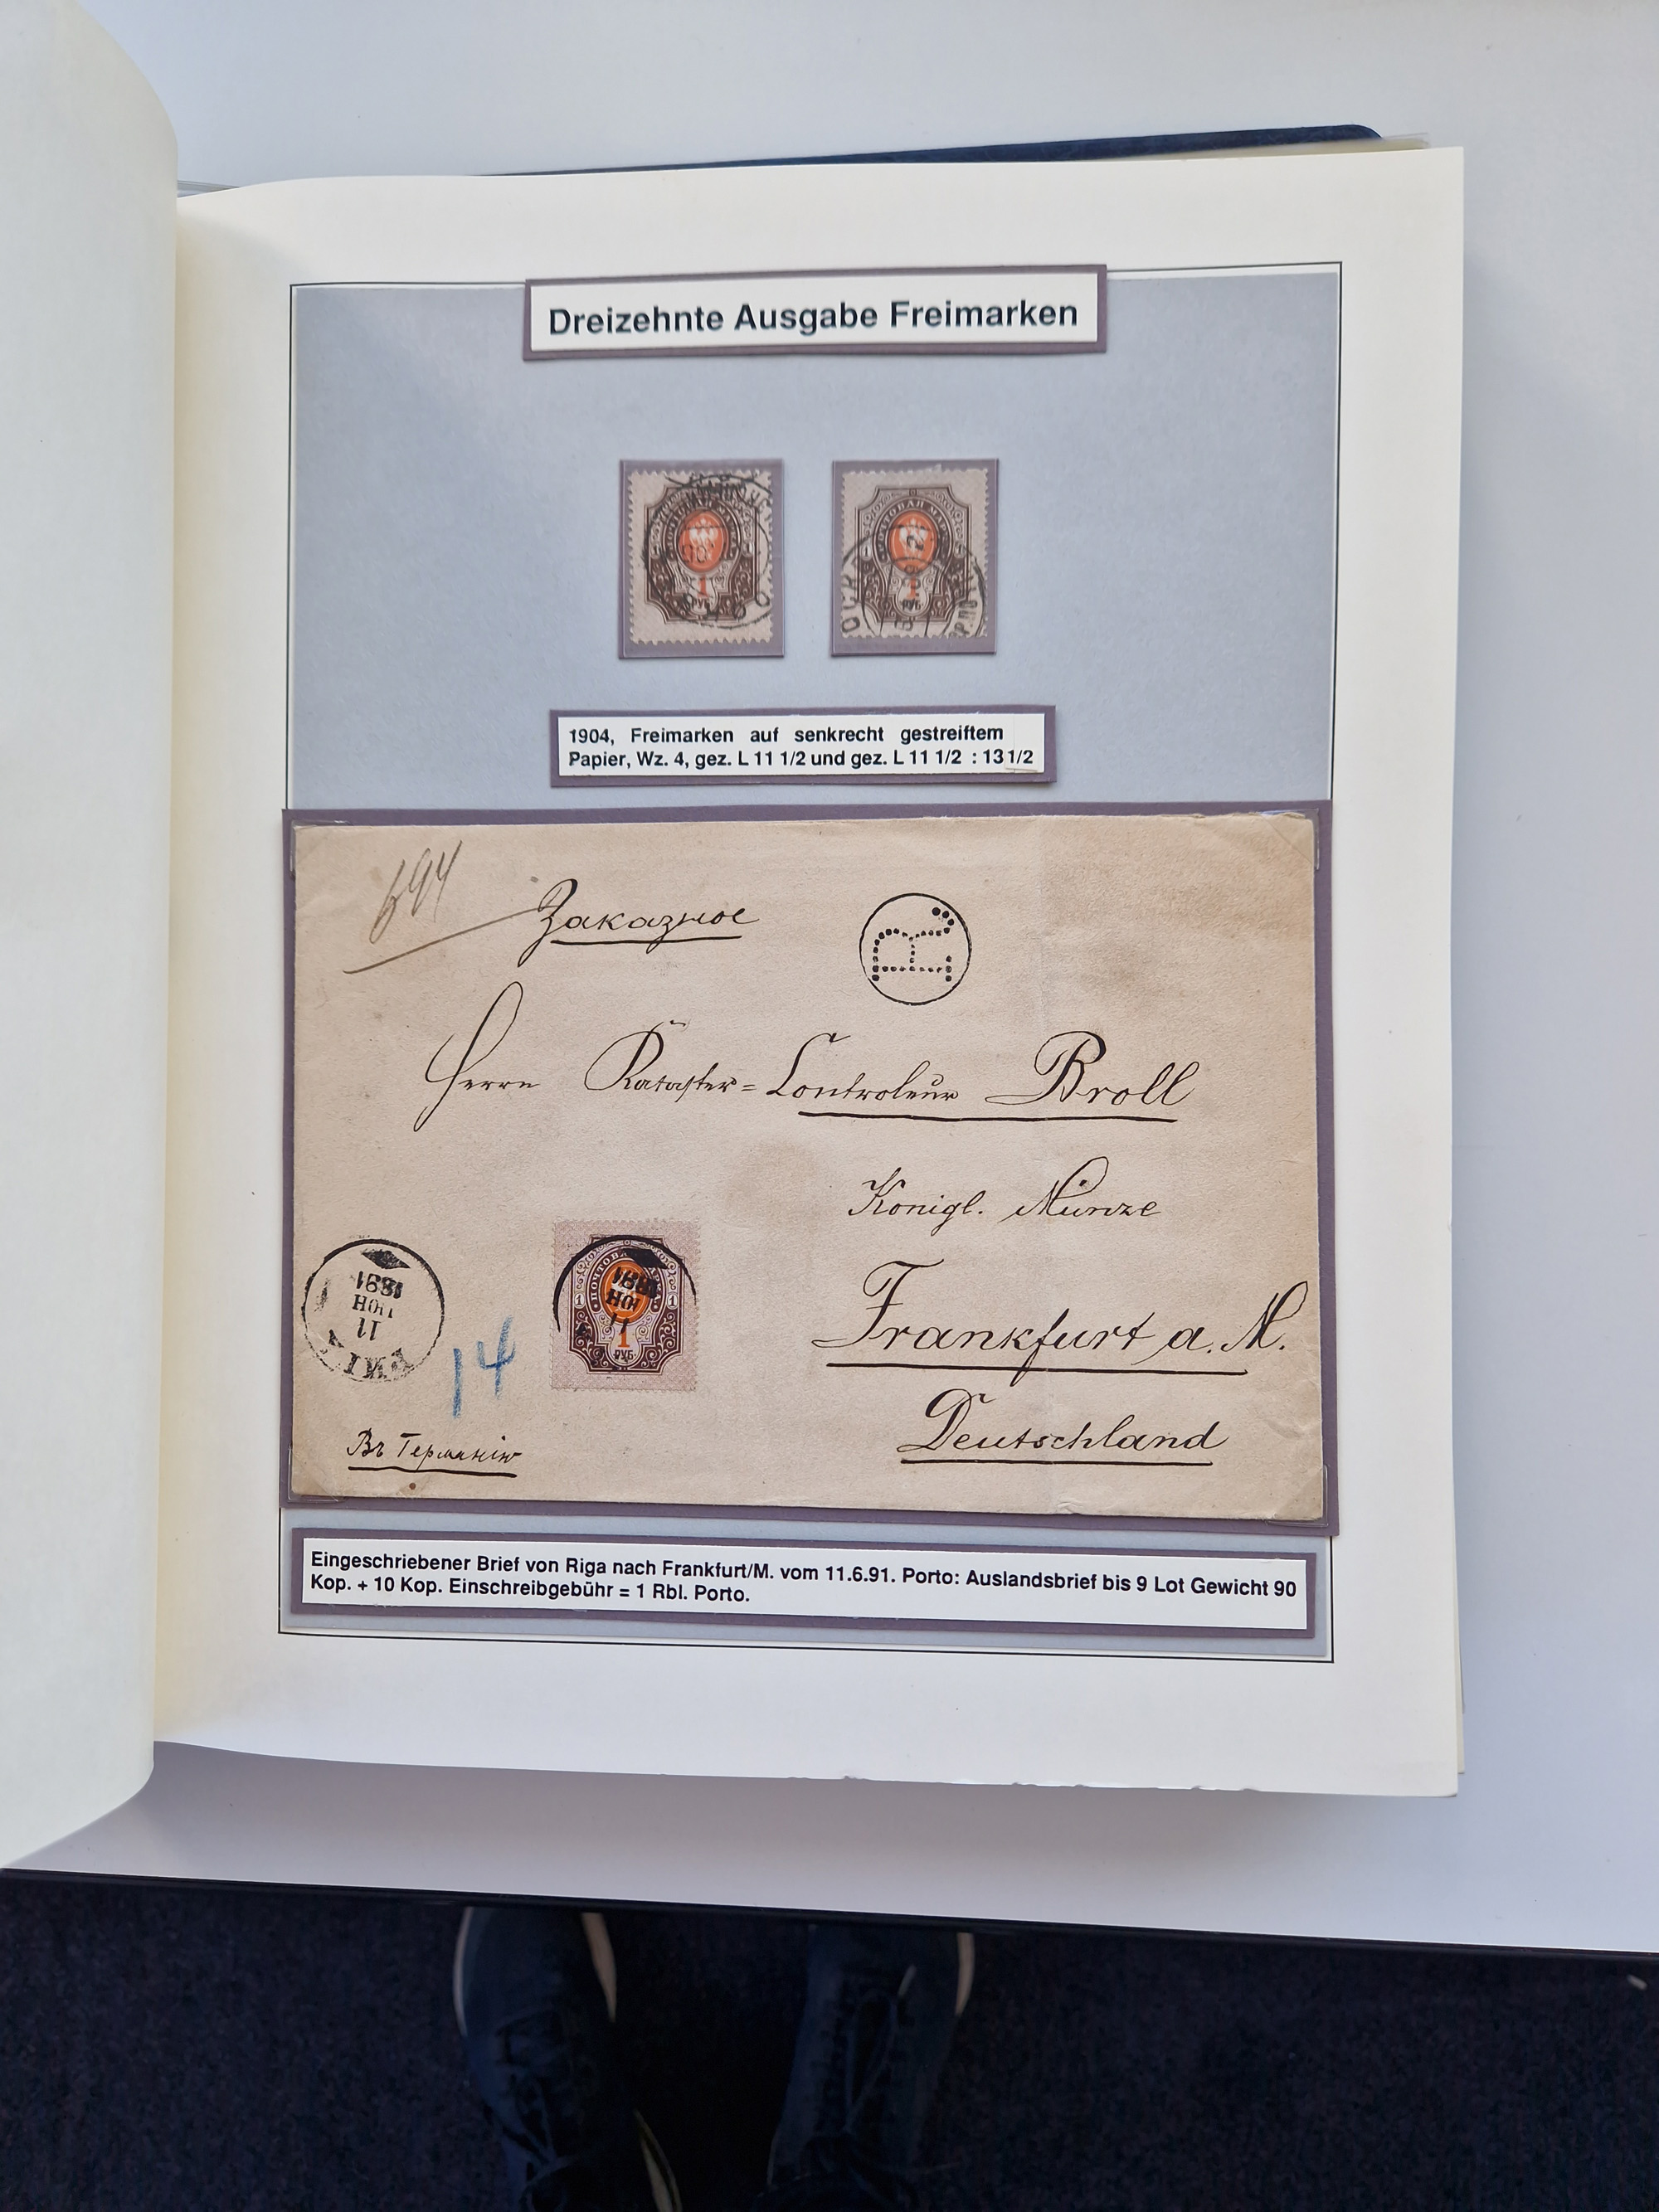 Dreizehnte Ausgabe Freimarken
1
РУБ
ПОЧТОВАЯ МАР
1
РУБ
1904, Freimarken auf senkrecht gestreiftem
Papier, Wz. 4, gez. L 11 1/2 und gez. L 11 1/2 : 13 1/2
694
Заказное
R.
Herrn Kataster=Controleur Broll
Königl. Münze
Frankfurt a. M.
Deutschland
РИГА
11
ІЮН
1891
14
ПОЧТОВА
1 1
1
РУБ.
11
ІЮН
1891
Въ Германію
Eingeschriebener Brief von Riga nach Frankfurt/M. vom 11.6.91. Porto: Auslandsbrief bis 9 Lot Gewicht 90
Kop. + 10 Kop. Einschreibgebühr = 1 Rbl. Porto.